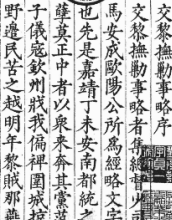 交黎撫勦事略序
交黎撫勦事略者
馬安成歐陽公所為經略文字
也先是嘉靖丁未安南都統之
孽莫正中者以衆來奔其黨范
子儀寇欽州戕我偏裨圍城掠
野邊民苦之越明年黎賊那燕